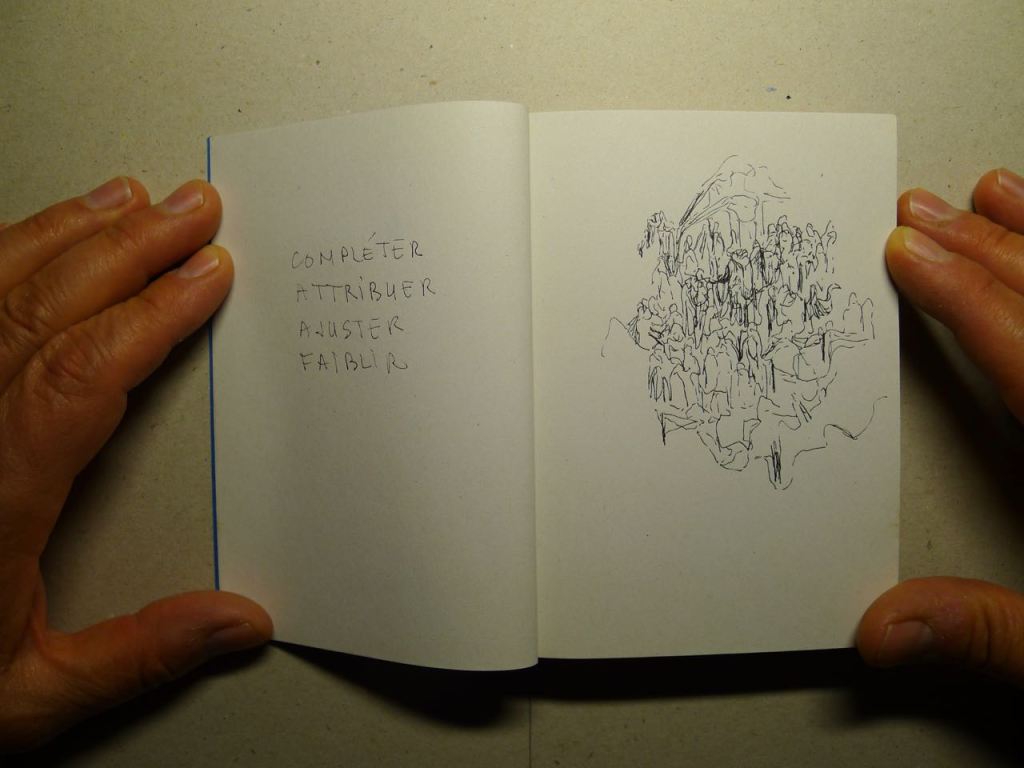 COMPLÉTER
ATTRIBUER
AJUSTER
FAIBLIR